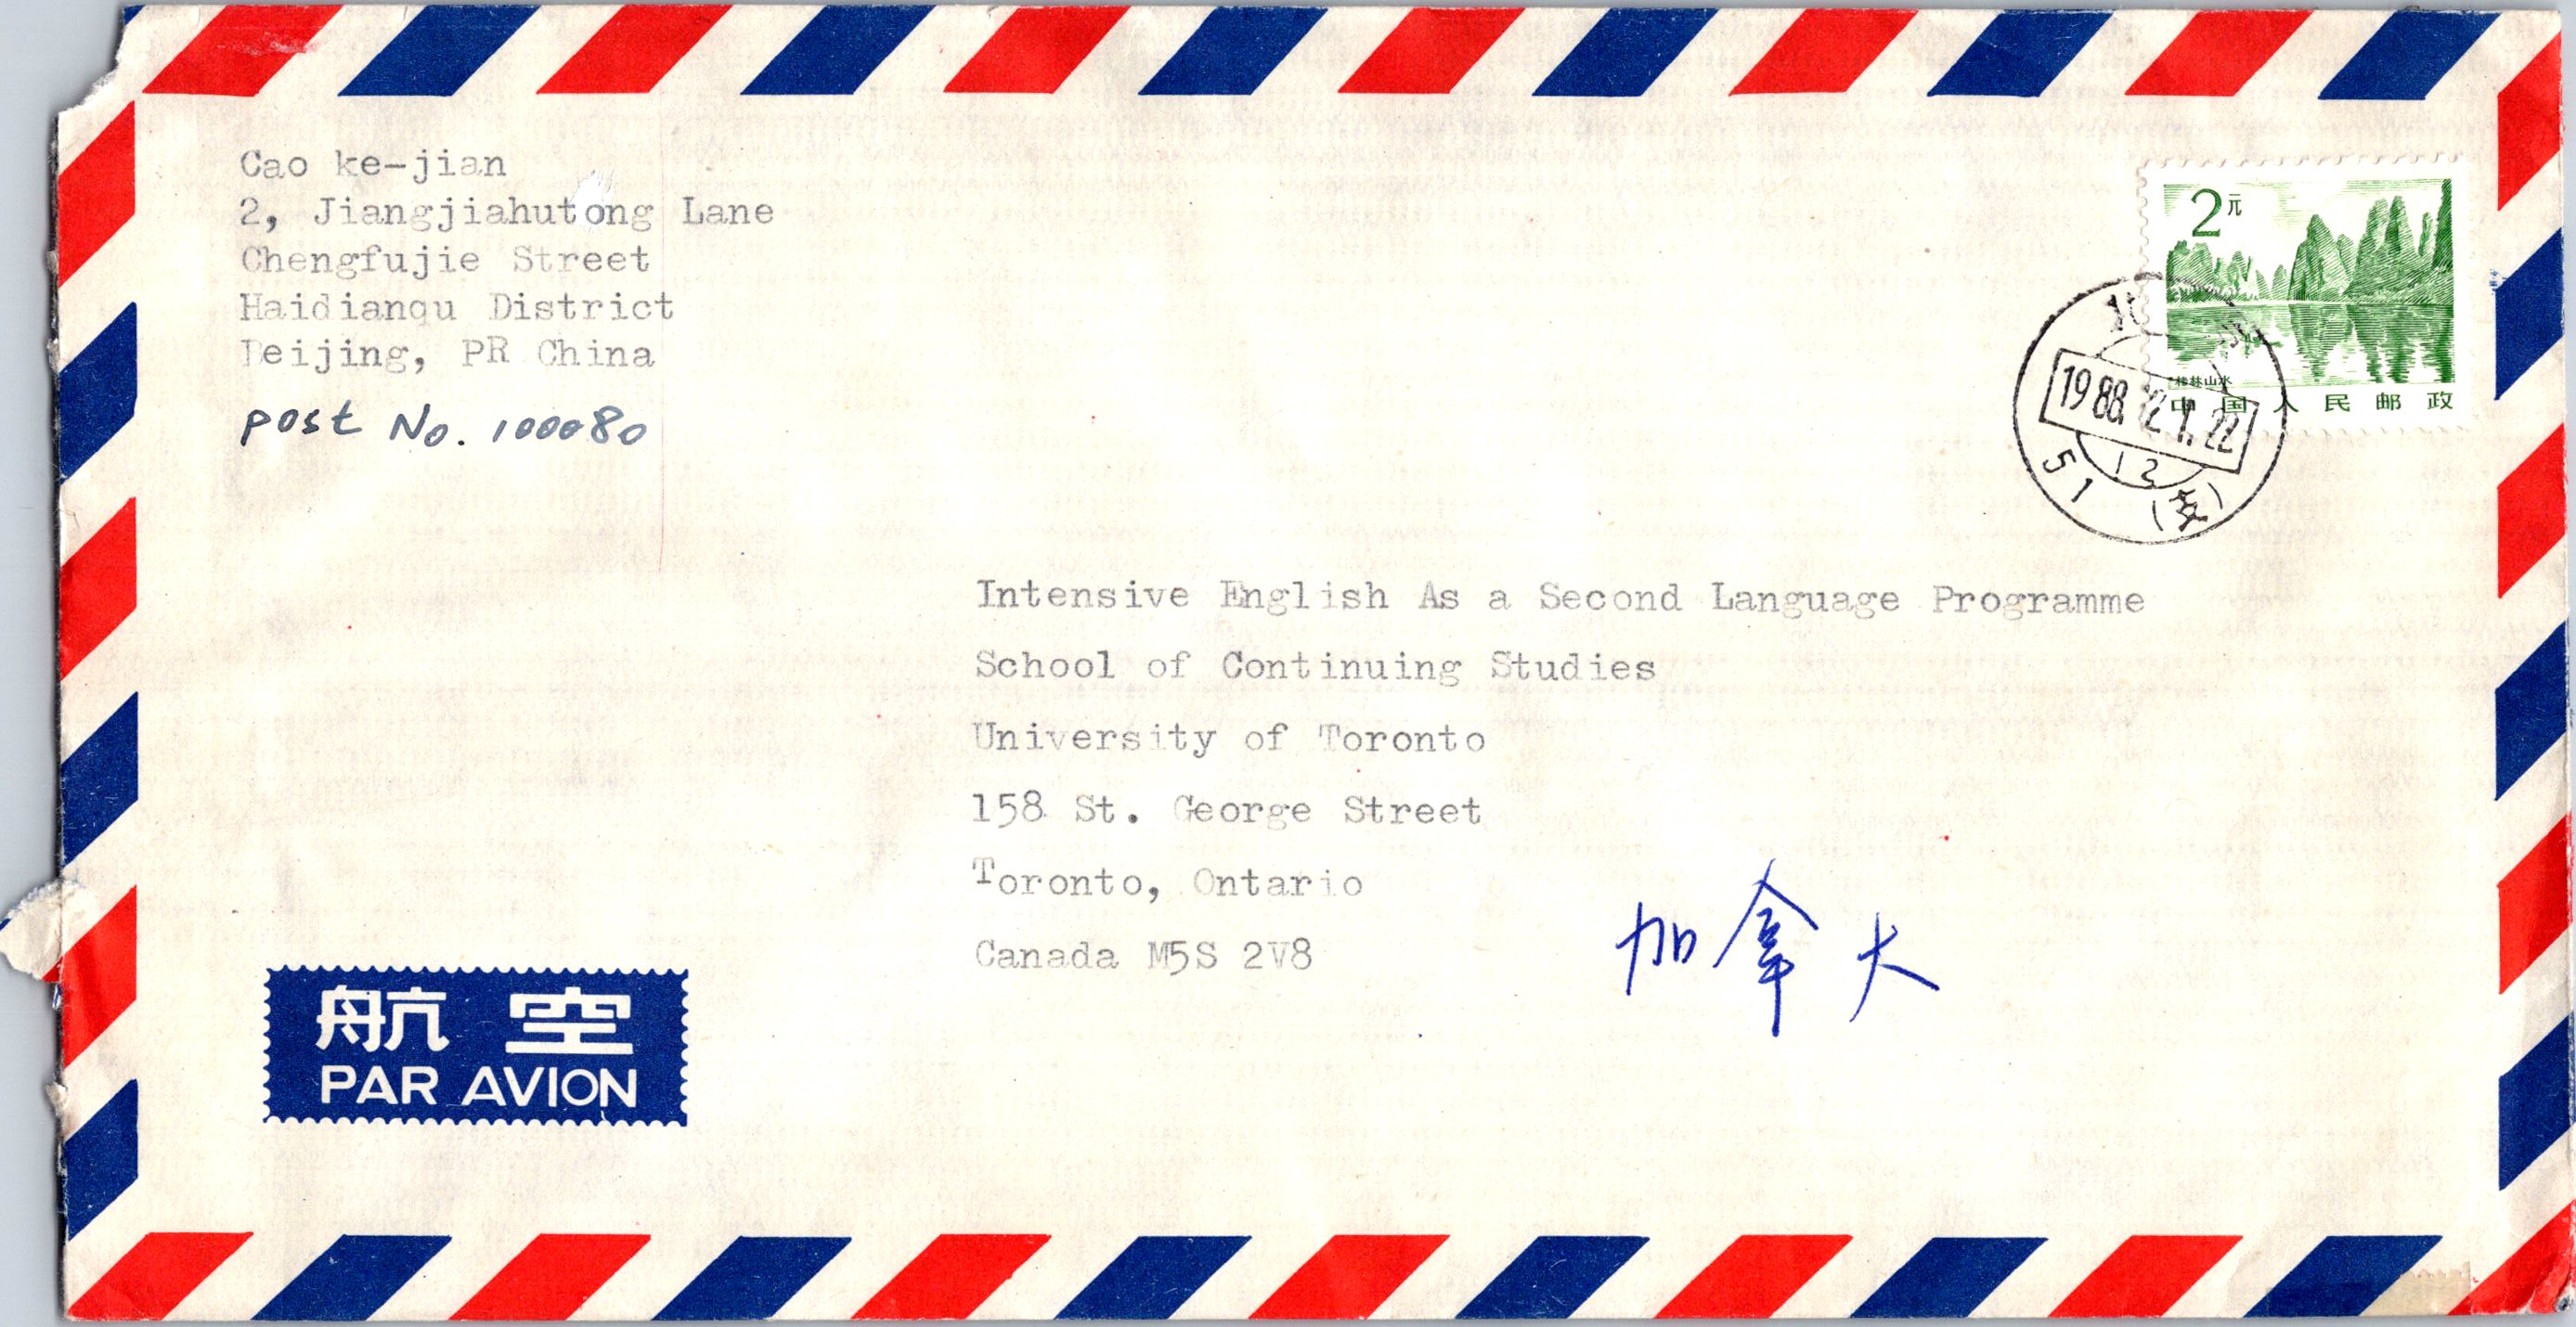 Cao ke-jian
2, Jiangjiahutong Lane
Chengfujie Street
Haidianqu District
Beijing, PR China
post No. 100080
2元
桂林山水
中国人民邮政
北京
1988.12.1.22
12
51 (支)
Intensive English As a Second Language Programme
School of Continuing Studies
University of Toronto
158 St. George Street
Toronto, Ontario
Canada M5S 2V8
加拿大
航空
PAR AVION